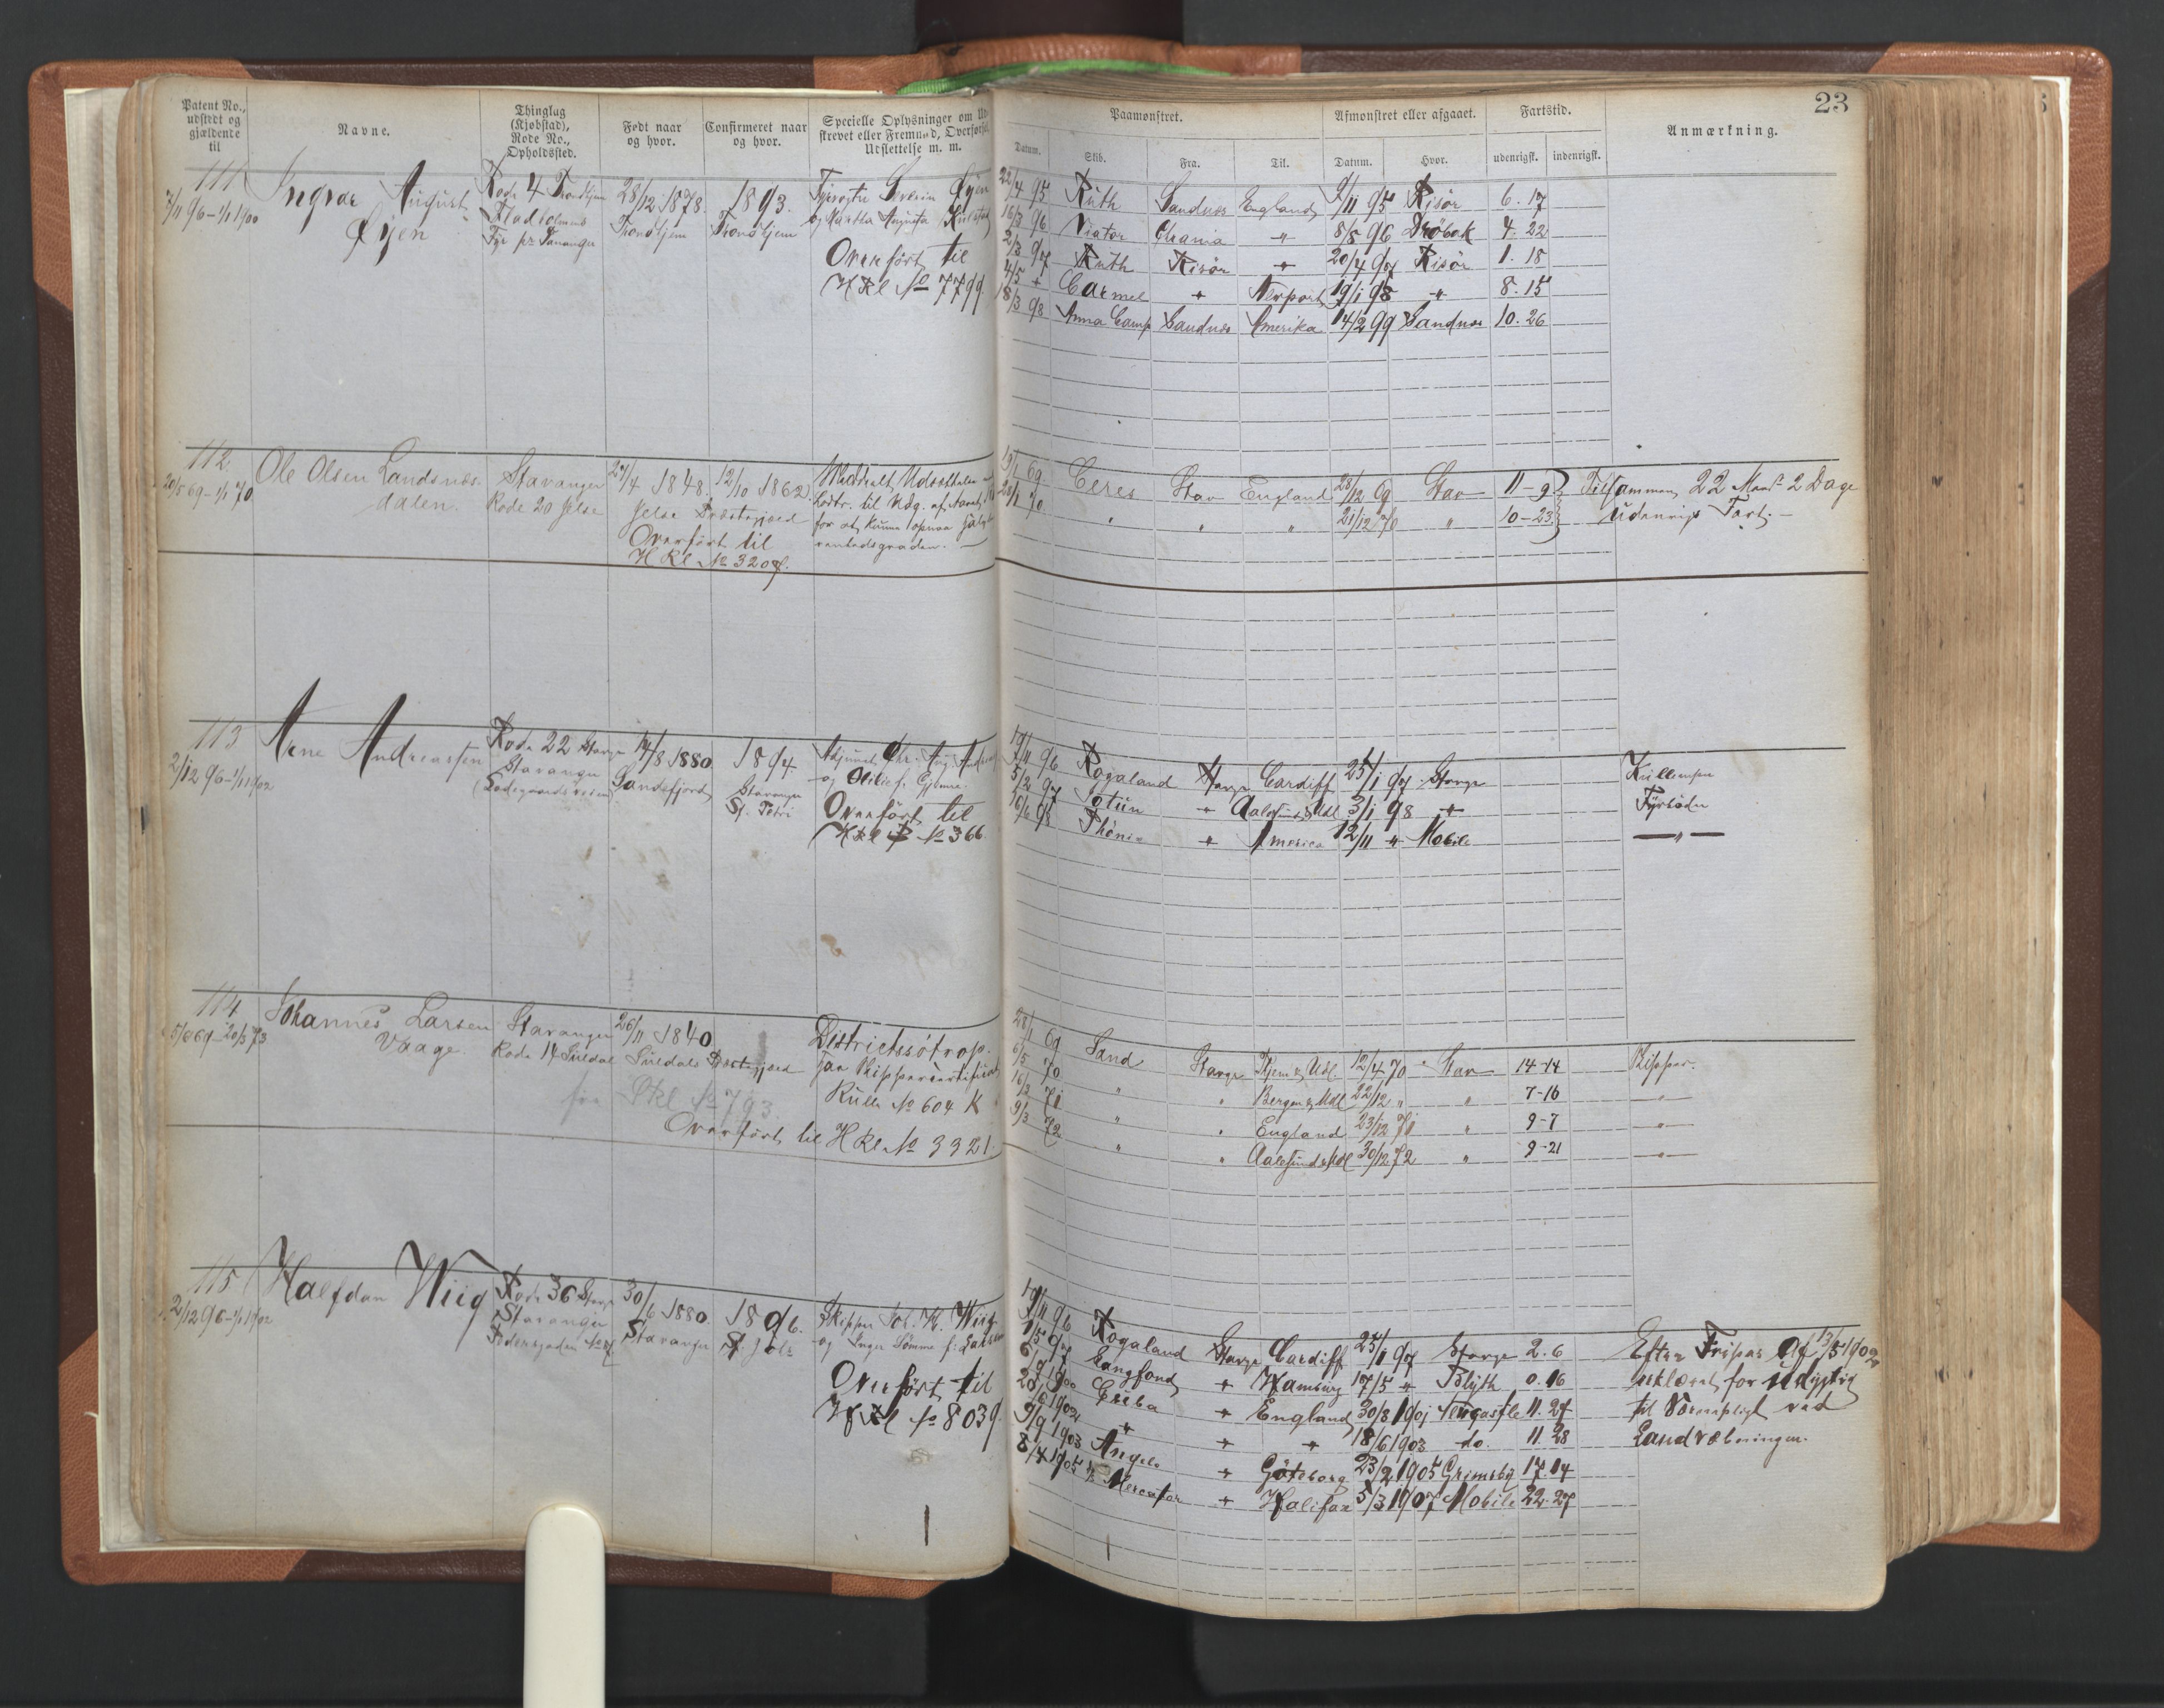 Patent No., udstedt og gjældende til
Navne.
Thinglag (Kjøbstad), Rode No., Opholdssted.
Født naar og hvor.
Confirmeret naar og hvor.
Specielle Oplysninger om
strevet eller Fremmed, Overførsel,
Udslettelse m. m.
Paamønstret.
Afmønstret eller afgaaet.
Fartstid.
Anmærkning.
23
Datum. Skib. Fra. Til. Datum. Hvor. udenrigsk. indenrigsk.
111
7/11 96 - 1/1 1900
Ingvar August
Øyen
Rode 4 Trondhjem
Fladholmens
Fyr pr Tananger
28/12 1878.
Trondhjem
1893.
Trondhjem
Fyrvogter Severin Øyen
og Martha Augusta
Overført til
HRl No 7799
22/4 95 Ruth Sandnes England 9/11 95 Risør 6. 17
16/3 96 Viator Chrania " 8/8 96 Drøbak 4. 22
2/3 97 Ruth Risør " 20/4 97 Risør 1. 18
4/5 " Carmel " Newport 19/1 98 " 8. 15
18/3 98 Anna Camp Sandnes Amerika 14/2 99 Sandnes 10. 26
112
20/5 69 - 1/1 70
Ole Olsen Landsnes-
dalen.
Stavanger
Rode 20 Jelse
27/4 1848.
Jelse Præstegjæld
12/10 1862.
Overført til
HRl No 3207.
for at kunne opnaa
Ceres Stav England 28/12 69 Stav 11-9
28/1 70 " " " 21/12 70 " 10-23
Tilsammen 22 Maan. 2 Dage
Udenrigs Fart.
113
2/12 96 - 1/1 1902
Arne Andreassen
Rode 22 Stavgr
Stavanger
14/8 1880
Sandefjord
1894.
Stavanger
St. Petri
Overført til
No 366
19/11 96 Rogaland Stavgr Cardiff 25/1 97 Stavgr
5/2 97 Jotun " Aalesund & Udl 3/1 98 "
16/6 98 Phønix " America 12/11 " Mobile
Fyrbøder
— " —
114
5/6 69 - 20/3 73
Johannes Larsen
Vaage
Stavanger
Rode 14 Suldal
26/11 1840
Suldals Præstegjæld
fra Skl No 793.
Districtssøtrop.
Rulle No 604 K
Overført til HRl No 3321.
28/1 69 Sand Stavgr Thjem & Udl. 12/4 70 Stav 14-14 Skipper.
6/5 70 " " Bergen & Udl 22/12 " " 7-16 "
16/2 71 " " England 23/12 71 " 9-7 "
9/3 72 " " Aalesund & Udl 30/12 72 " 9-21 "
115
2/12 96 - 1/1 1902
Halfdan Wiig
Rode 36 Stavgr
Stavanger
Pedersgaden
30/6 1880.
Stavanger
1896.
Skipper Joh. K. Wiig
og Inger
Overført til
No 8039.
19/11 96 Rogaland Stavgr Cardiff 25/1 97 Stavgr 2. 6
1/5 97 Langfond " Hamburg 17/5 " Blyth 0. 16
England 30/8 1901 11. 27
" " 18/6 1903 do. 11. 28
9/9 1903 Angelo " Göteborg 23/2 1905 Grimsby 17. 14
8/4 1905 Mercator " Halifax 5/3 1907 Mobile 22. 27
Efter Fripas af 13/5 1902
erklæret for udygtig
til Værnepligt ved
Landværningen.